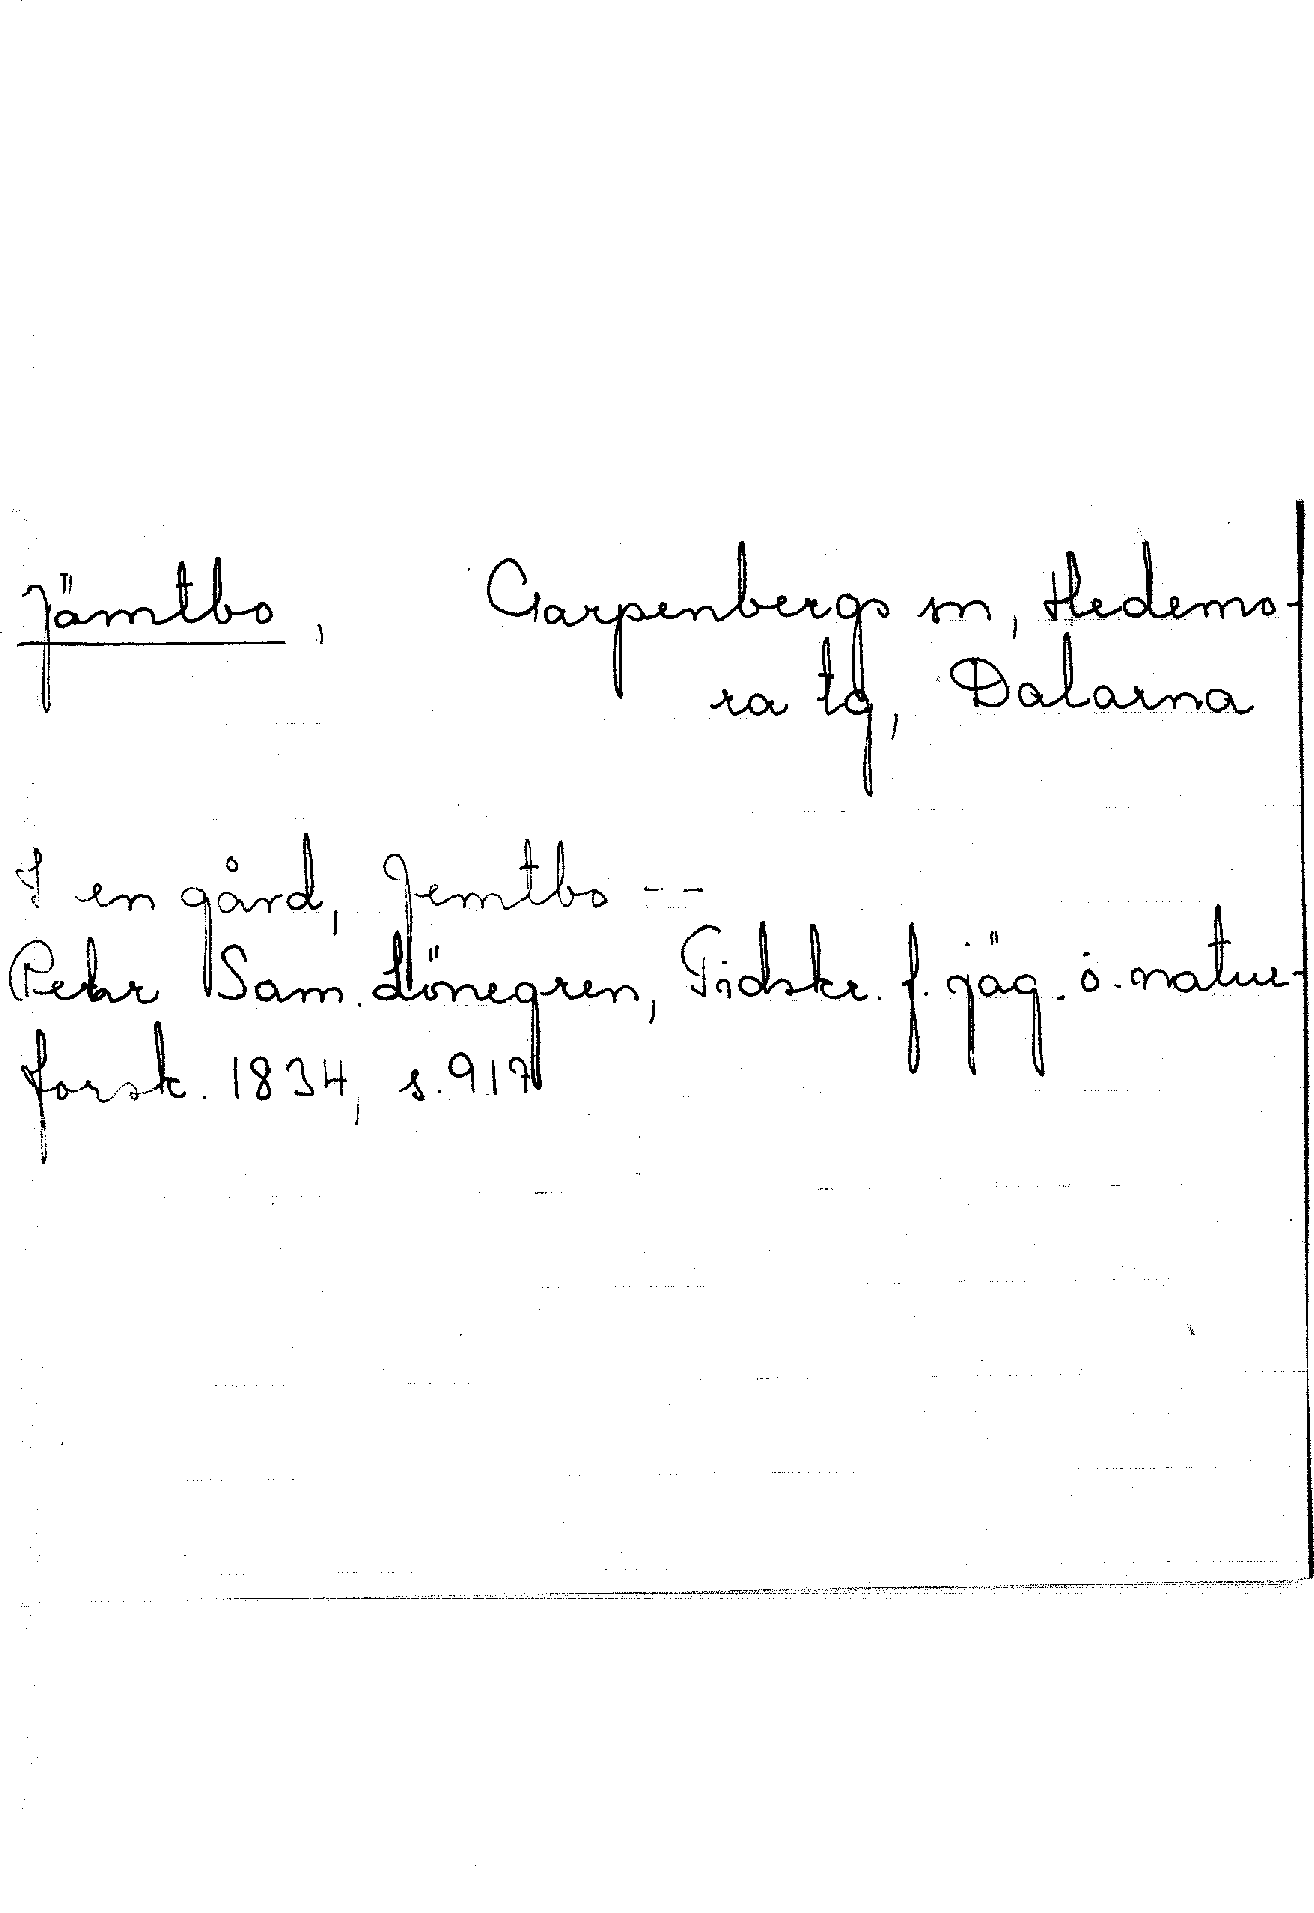 Jämtbo, Garpenbergs sn, Hedemo-
ra tg, Dalarna
I en gård, Jemtbo --
Pehr Sam. Lönegren, Tidskr. f. jäg. o. natur-
forsk. 1834, s. 917